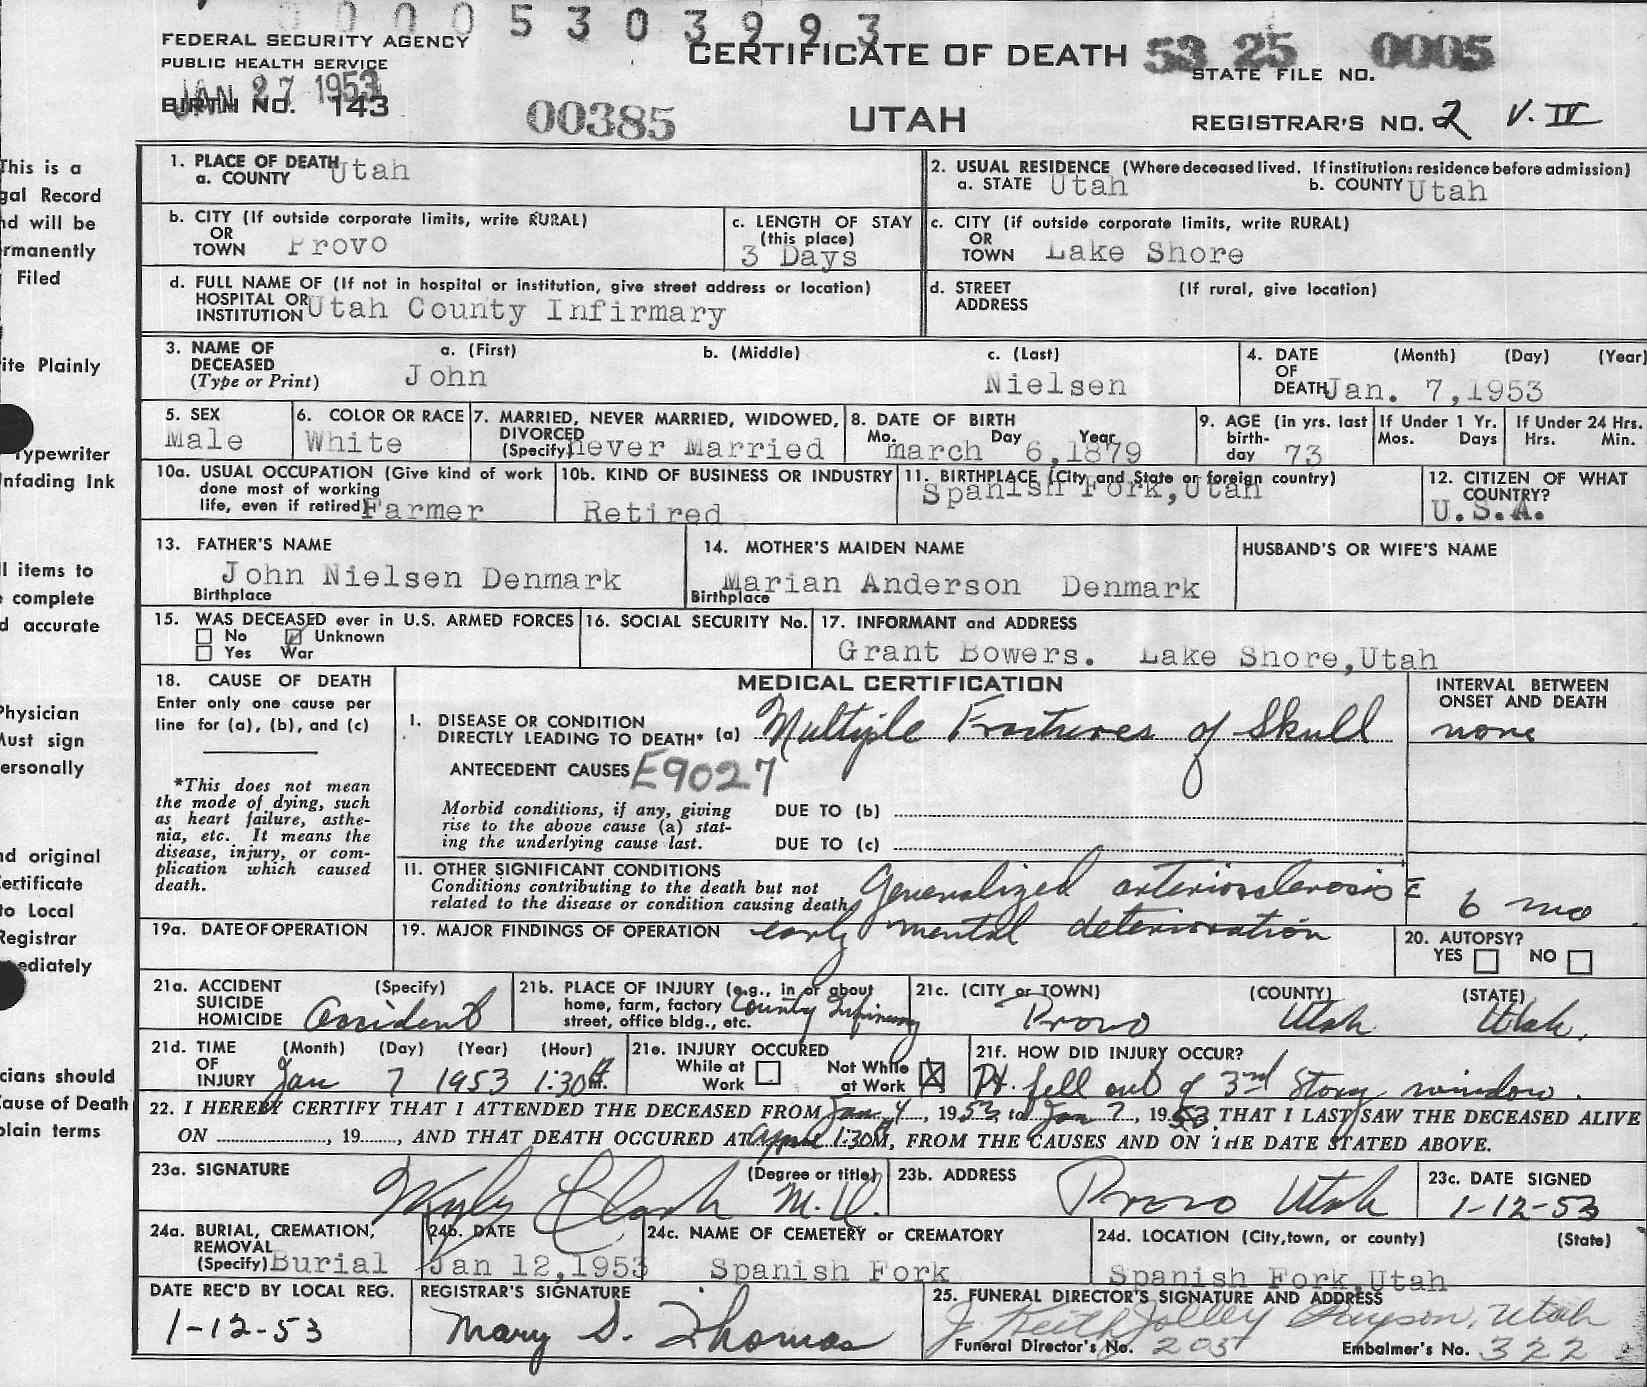 0 0 0 0 5 3 0 3 9 9 3
FEDERAL SECURITY AGENCY
PUBLIC HEALTH SERVICE
JAN 27 1953
BIRTH NO. 143
00385
CERTIFICATE OF DEATH
UTAH
53 25 0005
STATE FILE NO.
REGISTRAR'S NO. 2 V. IV
This is a
gal Record
nd will be
rmanently
Filed
ite Plainly
Typewriter
nfading Ink
l items to
complete
d accurate
Physician
Must sign
ersonally
nd original
ertificate
to Local
Registrar
ediately
cians should
Cause of Death
plain terms
1. PLACE OF DEATH
a. COUNTY Utah
2. USUAL RESIDENCE (Where deceased lived. If institution: residence before admission)
a. STATE Utah b. COUNTY Utah
b. CITY (If outside corporate limits, write RURAL)
OR
TOWN Provo
c. LENGTH OF STAY
(this place)
3 Days
c. CITY (if outside corporate limits, write RURAL)
OR
TOWN Lake Shore
d. FULL NAME OF (If not in hospital or institution, give street address or location)
HOSPITAL OR
INSTITUTION Utah County Infirmary
d. STREET (If rural, give location)
ADDRESS
3. NAME OF DECEASED
(Type or Print)
a. (First) b. (Middle) c. (Last)
John Nielsen
4. DATE OF DEATH (Month) (Day) (Year)
Jan. 7,1953
5. SEX
Male
6. COLOR OR RACE
White
7. MARRIED, NEVER MARRIED, WIDOWED,
DIVORCED
(Specify) never Married
8. DATE OF BIRTH
Mo. Day Year
march 6,1879
9. AGE (in yrs. last
birth-
day 73
If Under 1 Yr.
Mos. Days
If Under 24 Hrs.
Hrs. Min.
10a. USUAL OCCUPATION (Give kind of work
done most of working
life, even if retired) Farmer
10b. KIND OF BUSINESS OR INDUSTRY
Retired
11. BIRTHPLACE (City and State or foreign country)
Spanish Fork,Utah
12. CITIZEN OF WHAT
COUNTRY?
U.S.A.
13. FATHER'S NAME
John Nielsen Denmark
Birthplace
14. MOTHER'S MAIDEN NAME
Marian Anderson Denmark
Birthplace
HUSBAND'S OR WIFE'S NAME
15. WAS DECEASED ever in U.S. ARMED FORCES
No Unknown
Yes War
16. SOCIAL SECURITY No.
17. INFORMANT and ADDRESS
Grant Bowers. Lake Shore,Utah
18. CAUSE OF DEATH
Enter only one cause per
line for (a), (b), and (c)
*This does not mean
the mode of dying, such
as heart failure, asthe-
nia, etc. It means the
disease, injury, or com-
plication which caused
death.
MEDICAL CERTIFICATION
INTERVAL BETWEEN
ONSET AND DEATH
I. DISEASE OR CONDITION
DIRECTLY LEADING TO DEATH* (a) Multiple Fractures of Skull none
ANTECEDENT CAUSES E9027
Morbid conditions, if any, giving
rise to the above cause (a) stat-
ing the underlying cause last.
DUE TO (b)
DUE TO (c)
11. OTHER SIGNIFICANT CONDITIONS
Conditions contributing to the death but not
related to the disease or condition causing death.
Generalized arteriosclerosis c̄
early mental deterioration
6 mo
19a. DATE OF OPERATION
19. MAJOR FINDINGS OF OPERATION
20. AUTOPSY?
YES NO
21a. ACCIDENT
SUICIDE
HOMICIDE
(Specify)
Accident
21b. PLACE OF INJURY (e.g., in or about
home, farm, factory
street, office bldg., etc.
County Infirmary
21c. (CITY or TOWN) (COUNTY) (STATE)
Provo Utah Utah.
21d. TIME OF INJURY (Month) (Day) (Year) (Hour)
Jan 7 1953 1:30
21e. INJURY OCCURED
While at Work
Not While at Work X
21f. HOW DID INJURY OCCUR?
Pt. fell out of 3rd Story window.
22. I HEREBY CERTIFY THAT I ATTENDED THE DECEASED FROM Jan 4, 1953, to Jan 7, 1953, THAT I LAST SAW THE DECEASED ALIVE
ON ........, 19......, AND THAT DEATH OCCURED AT 1:30 M, FROM THE CAUSES AND ON THE DATE STATED ABOVE.
23a. SIGNATURE (Degree or title)
Clark M.D.
23b. ADDRESS
Provo Utah
23c. DATE SIGNED
1-12-53
24a. BURIAL, CREMATION,
REMOVAL
(Specify) Burial
24b. DATE
Jan 12,1953
24c. NAME OF CEMETERY or CREMATORY
Spanish Fork
24d. LOCATION (City,town, or county) (State)
Spanish Fork,Utah
DATE REC'D BY LOCAL REG.
1-12-53
REGISTRAR'S SIGNATURE
Mary S. Thomas
25. FUNERAL DIRECTOR'S SIGNATURE AND ADDRESS
J. Keith Jolley Payson, Utah
Funeral Director's No. 205
Embalmer's No. 322